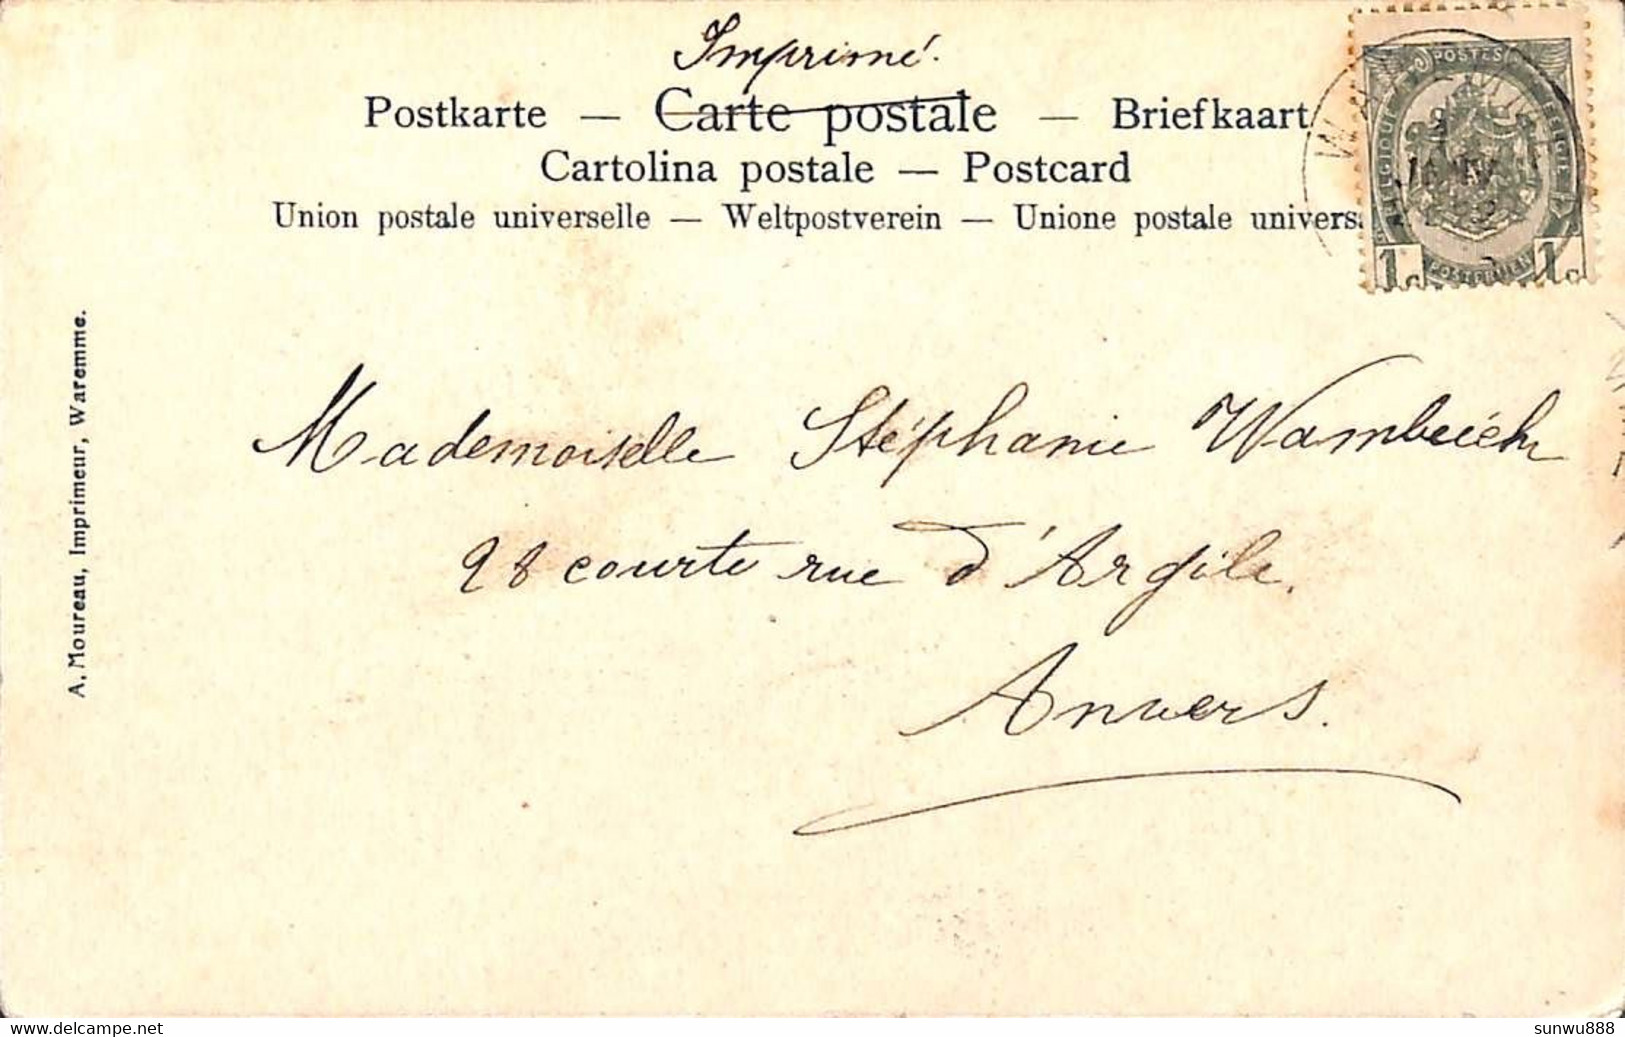 Imprimé.
Postkarte — Carte postale — Briefkaart
Cartolina postale — Postcard
Union postale universelle — Weltpostverein — Unione postale univers
POSTES
BELGIQUE
BELGIË
POSTERIJEN
1c 1c
A. Moureau, Imprimeur, Waremme.
Mademoiselle Stéphanie
28 courte rue d'Argile.
Anvers.
sunwu888